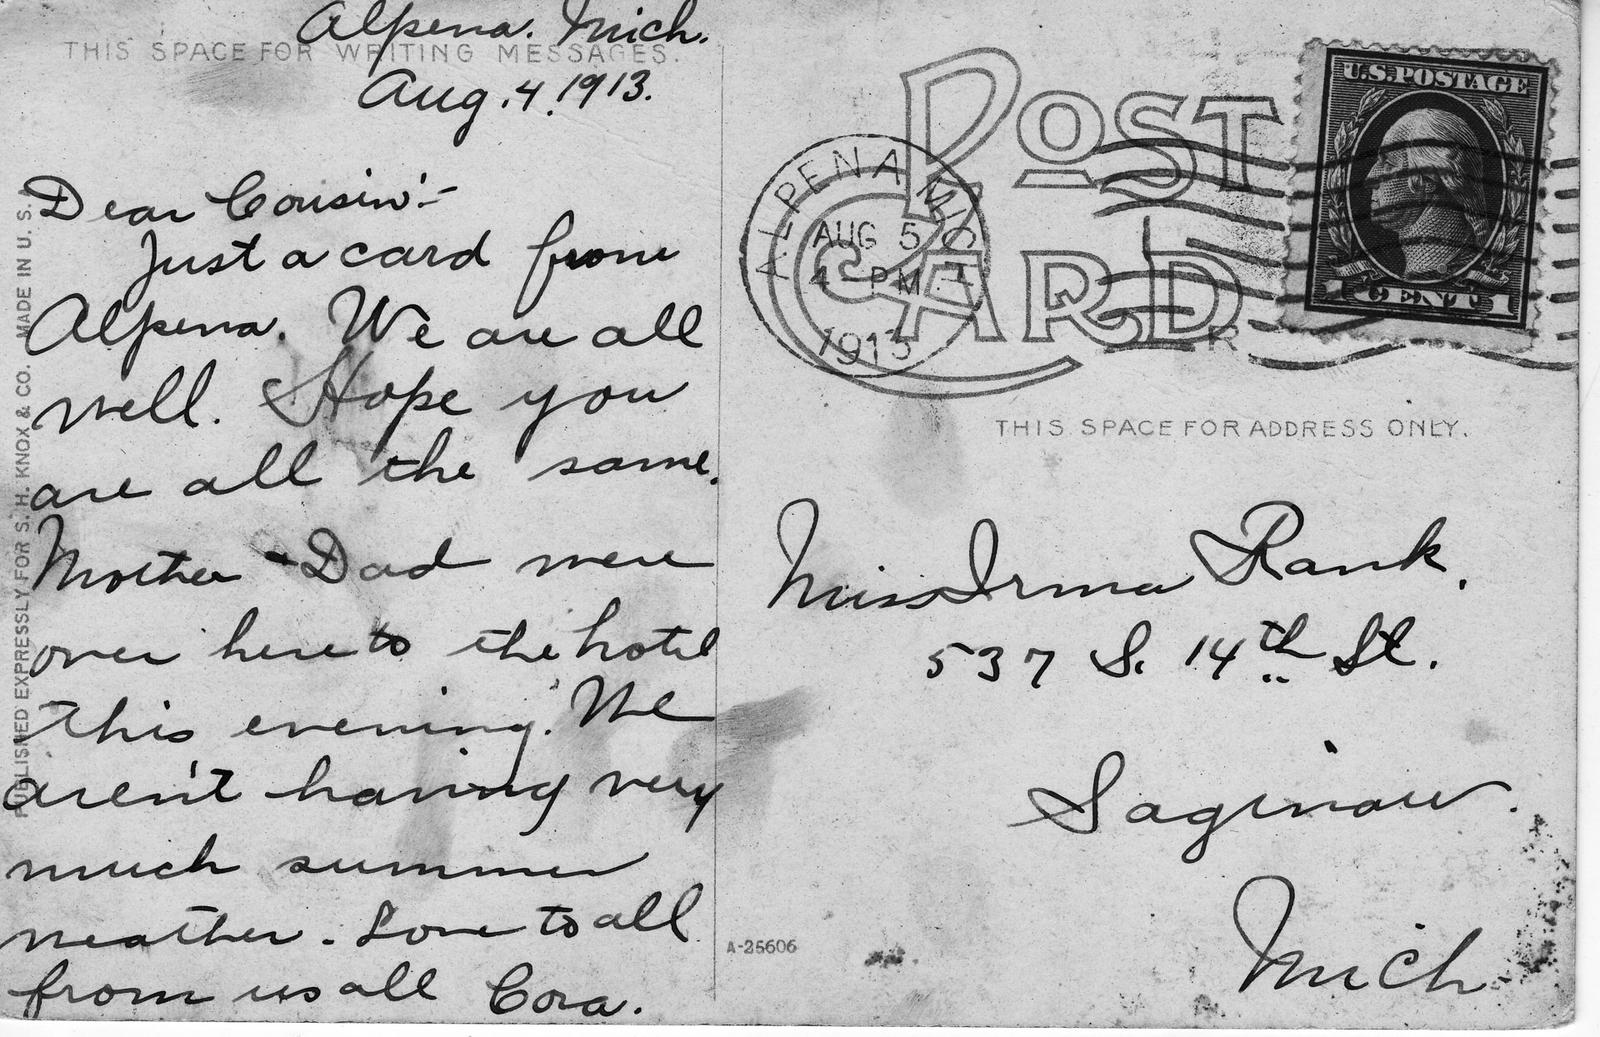 Alpena. Mich.
THIS SPACE FOR WRITING MESSAGES.
Aug. 4. 1913.
Dear Cousin:-
Just a card from
Alpena. We are all
well. Hope you
are all the same.
Mother - Dad were
over here to the hotel
this evening. We
aren't having very
much summer
weather. Love to all
from us all Cora.
PUBLISHED EXPRESSLY FOR S. H. KNOX & CO. MADE IN U. S. A.
POST CARD
ALPENA MICH.
AUG 5
4 - PM
1913
R
U.S. POSTAGE
1 CENT 1
THIS SPACE FOR ADDRESS ONLY.
Miss Irma Rank.
537 S. 14th St.
Saginaw.
Mich
A-25606